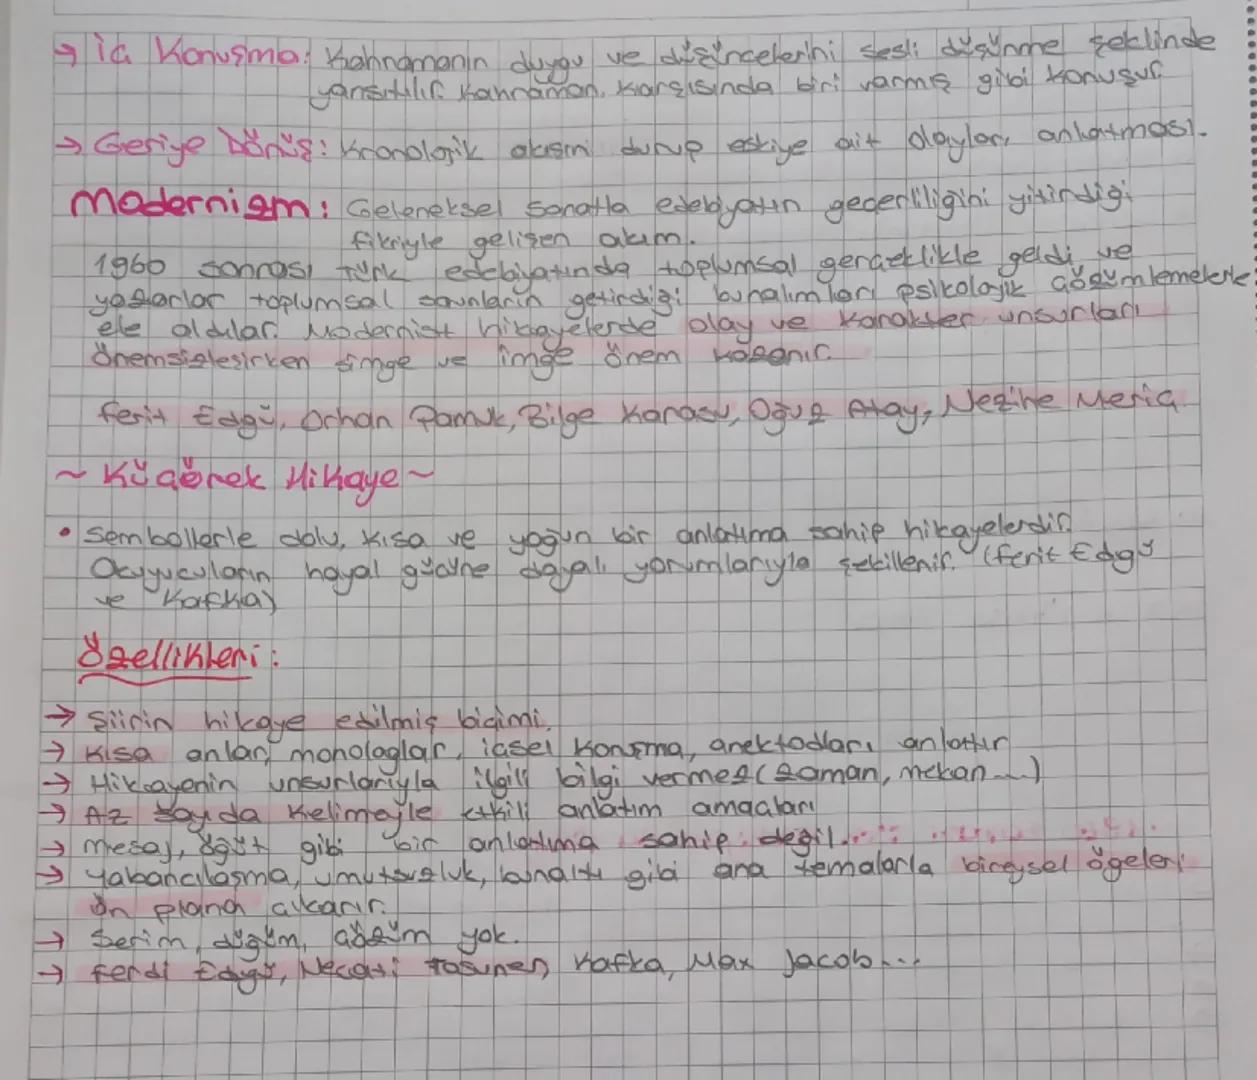 → İç Konuşma: Kahramanın duygu ve düşüncelerini sesli düşünme şeklinde
yansıtılır. Kahraman, karşısında biri varmış gibi konuşur.
→ Geriye Dönüş: Kronolojik akışını durup eskiye ait olayları anlatması.
Modernizm: Geleneksel sanatla edebiyatın geçerliliğini yitirdiği
fikriyle gelişen akım.
1960 sonrası Türk edebiyatında toplumsal gerçeklikle geldi ve
yazarlar toplumsal sorunların getirdiği bunalımları psikolojik çözümlemelerle
ele aldılar. Modernist hikayelerde olay ve karakter unsurları
önemsizleşirken simge ve imge önem kazanır.
Ferit Edgü, Orhan Pamuk, Bilge Karasu, Oğuz Atay, Nezihe Meriç
~ Küçürek Hikaye ~
• Sembollerle dolu, kısa ve yoğun bir anlatıma sahip hikayelerdir.
Okuyucuların hayal gücüne dayalı yorumlarıyla şekillenir. (Ferit Edgü
ve Kafka)
Özellikleri:
→ Şiirin hikaye edilmiş biçimi.
→ Kısa anları, monologlar, içsel konuşma, anektodları anlatır
→ Hikayenin unsurlarıyla ilgili bilgi vermez (zaman, mekan...)
→ Az sayıda kelimeyle etkili anlatım amaçları
→ mesaj, öğüt gibi bir anlatıma sahip değil.
→ yabancılaşma, umutsuzluk, bunaltı gibi ana temalarla bireysel ögeleri
ön plana çıkarır.
→ Serim, düğüm, çözüm yok.
→ Ferdi Edgü, Necati Tosuner, Kafka, Max Jacob...